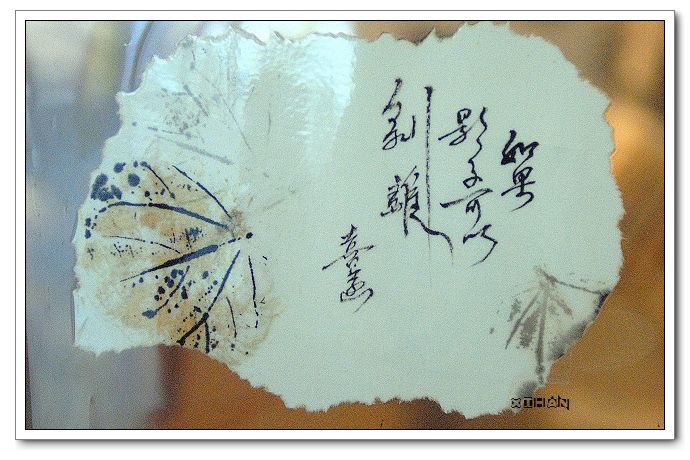 如果
影子可以
剝離
XTHAN